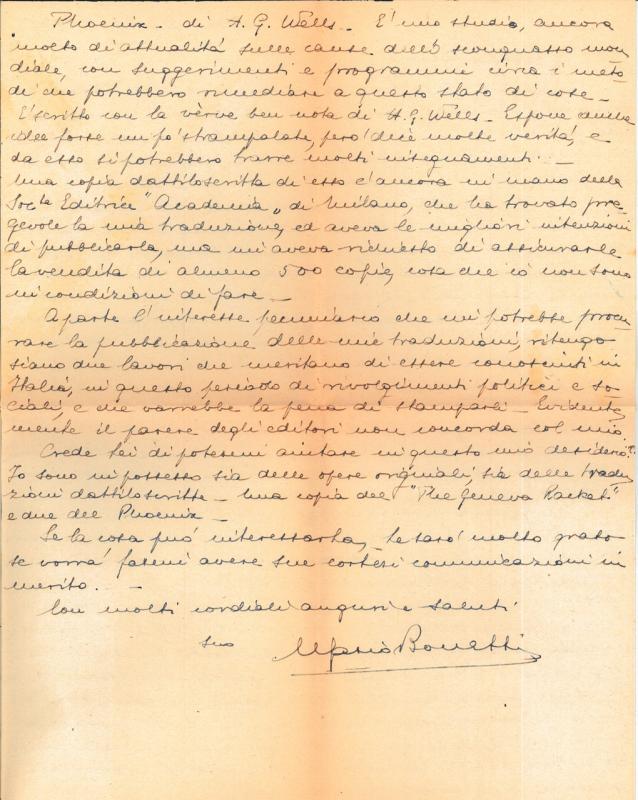 Phoenix - di H. G. Wells - E' uno studio, ancora
molto di attualitá sulle cause dello sconquasso mon
diale, con suggerimenti e programmi circa i meto
di che potrebbero rimediare a questo stato di cose -
E' scritto con la vèrve ben nota di H. G. Wells - Espone anche
idee forse un po' strampalate, peró dice molte veritá, e
da esso si potrebbero trarre molti insegnamenti. -
Una copia dattiloscritta di esso é ancora in mano della
Soc.tà Editrice "Academia" di Milano, che ha trovato pre
gevole la mia traduzione, ed aveva le migliori intenzioni
di pubblicarla, ma mi aveva richiesto di assicurarle
la vendita di almeno 500 copie, cosa che io non sono
in condizioni di fare -
A parte l'interesse pecuniario che mi potrebbe procu
rare la pubblicazione delle mie traduzioni, ritengo
siano due lavori che meritano di essere conosciuti in
Italia, in questo periodo di rivolgimenti politici e so
ciali, e che varrebbe la pena di stamparli - Evidente
mente il parere degli editori non concorda col mio
Crede Lei di potermi aiutare in questo mio desiderio?
Io sono in possesso sia delle opere originali, sia delle tradu
zioni dattiloscritte - Una copia del "The Geneva Racket"
e due del Phoenix -
Se la cosa puó interessarla, le saró molto grato
se vorrá farmi avere sue cortesi comunicazioni in
merito. -
Con molti cordiali auguri e saluti
Suo Mario Bonetti